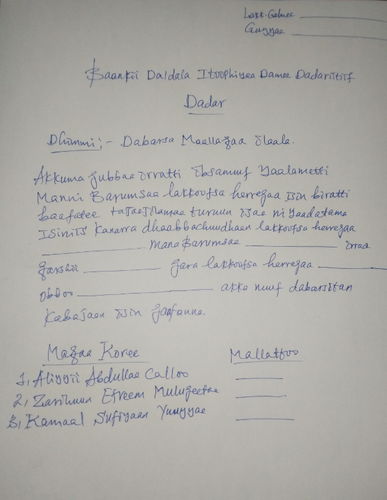 Lakk. Galmee ____________
Guyyaa ____________
Baankii Daldala Itoophiyaa Damee Dadariitiif
Dadar
Dhimmi:- Dabarsa Maallaqaa Ilaala.
Akkuma gubbaa irratti ibsamuuf yaalametti
Manni Barumsaa lakkoofsa herregaa isin biratti
banfatee tajaajilamaa turuun isaa ni yaadatama
Isinis kanarra dhaabbachuudhaan lakkoofsa herregaa
____________ mana Barumsaa ____________ irraa
qarshii ____________ gara lakkoofsa herregaa ____________
obboo ____________ akka nuuf dabarsitan
kabajaan isin gaafanna.
Maqaa Koree Mallattoo
1, Aliyyii Abdullae Calloo ____
2, Zarihuun Efreem Mulugeetaa ____
3, Kamaal Sufiyaan Yuuyyae ____